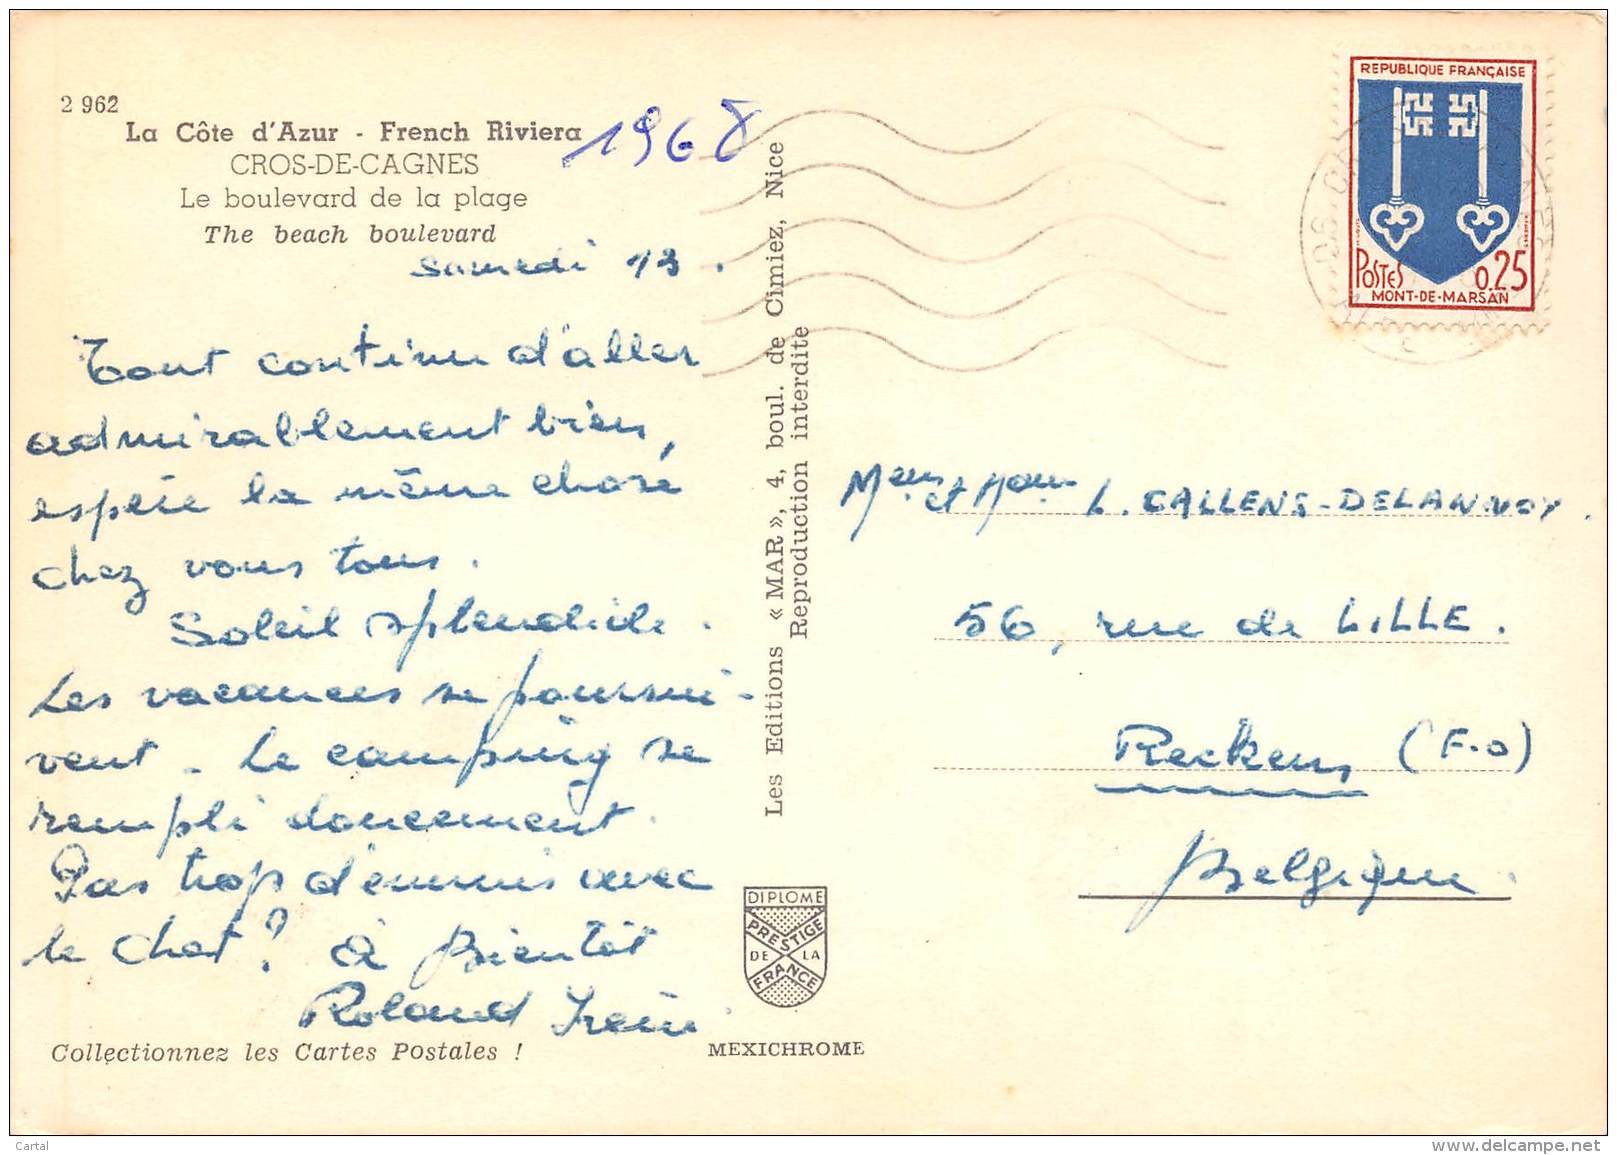 2 962
La Côte d'Azur - French Riviera
CROS-DE-CAGNES
Le boulevard de la plage
The beach boulevard
1968
samedi 13.
Tout continue d'aller
admirablement bien,
espère la même chose
chez vous tous.
Soleil splendide.
Les vacances se poursui-
vent. Le camping se
rempli doucement.
Pas trop d'ennuis avec
le chat? à Bientôt
Roland Irène
Collectionnez les Cartes Postales !
Les Editions « MAR », 4, boul. de Cimiez, Nice
Reproduction interdite
DIPLOME
PRESTIGE
DE LA
FRANCE
MEXICHROME
REPUBLIQUE FRANÇAISE
POSTES 0.25
MONT-DE-MARSAN
et L. CALLENS-DELANNOY.
56, rue de LILLE.
Reckem (F-O)
Belgique.
Cartal
delcampe.net